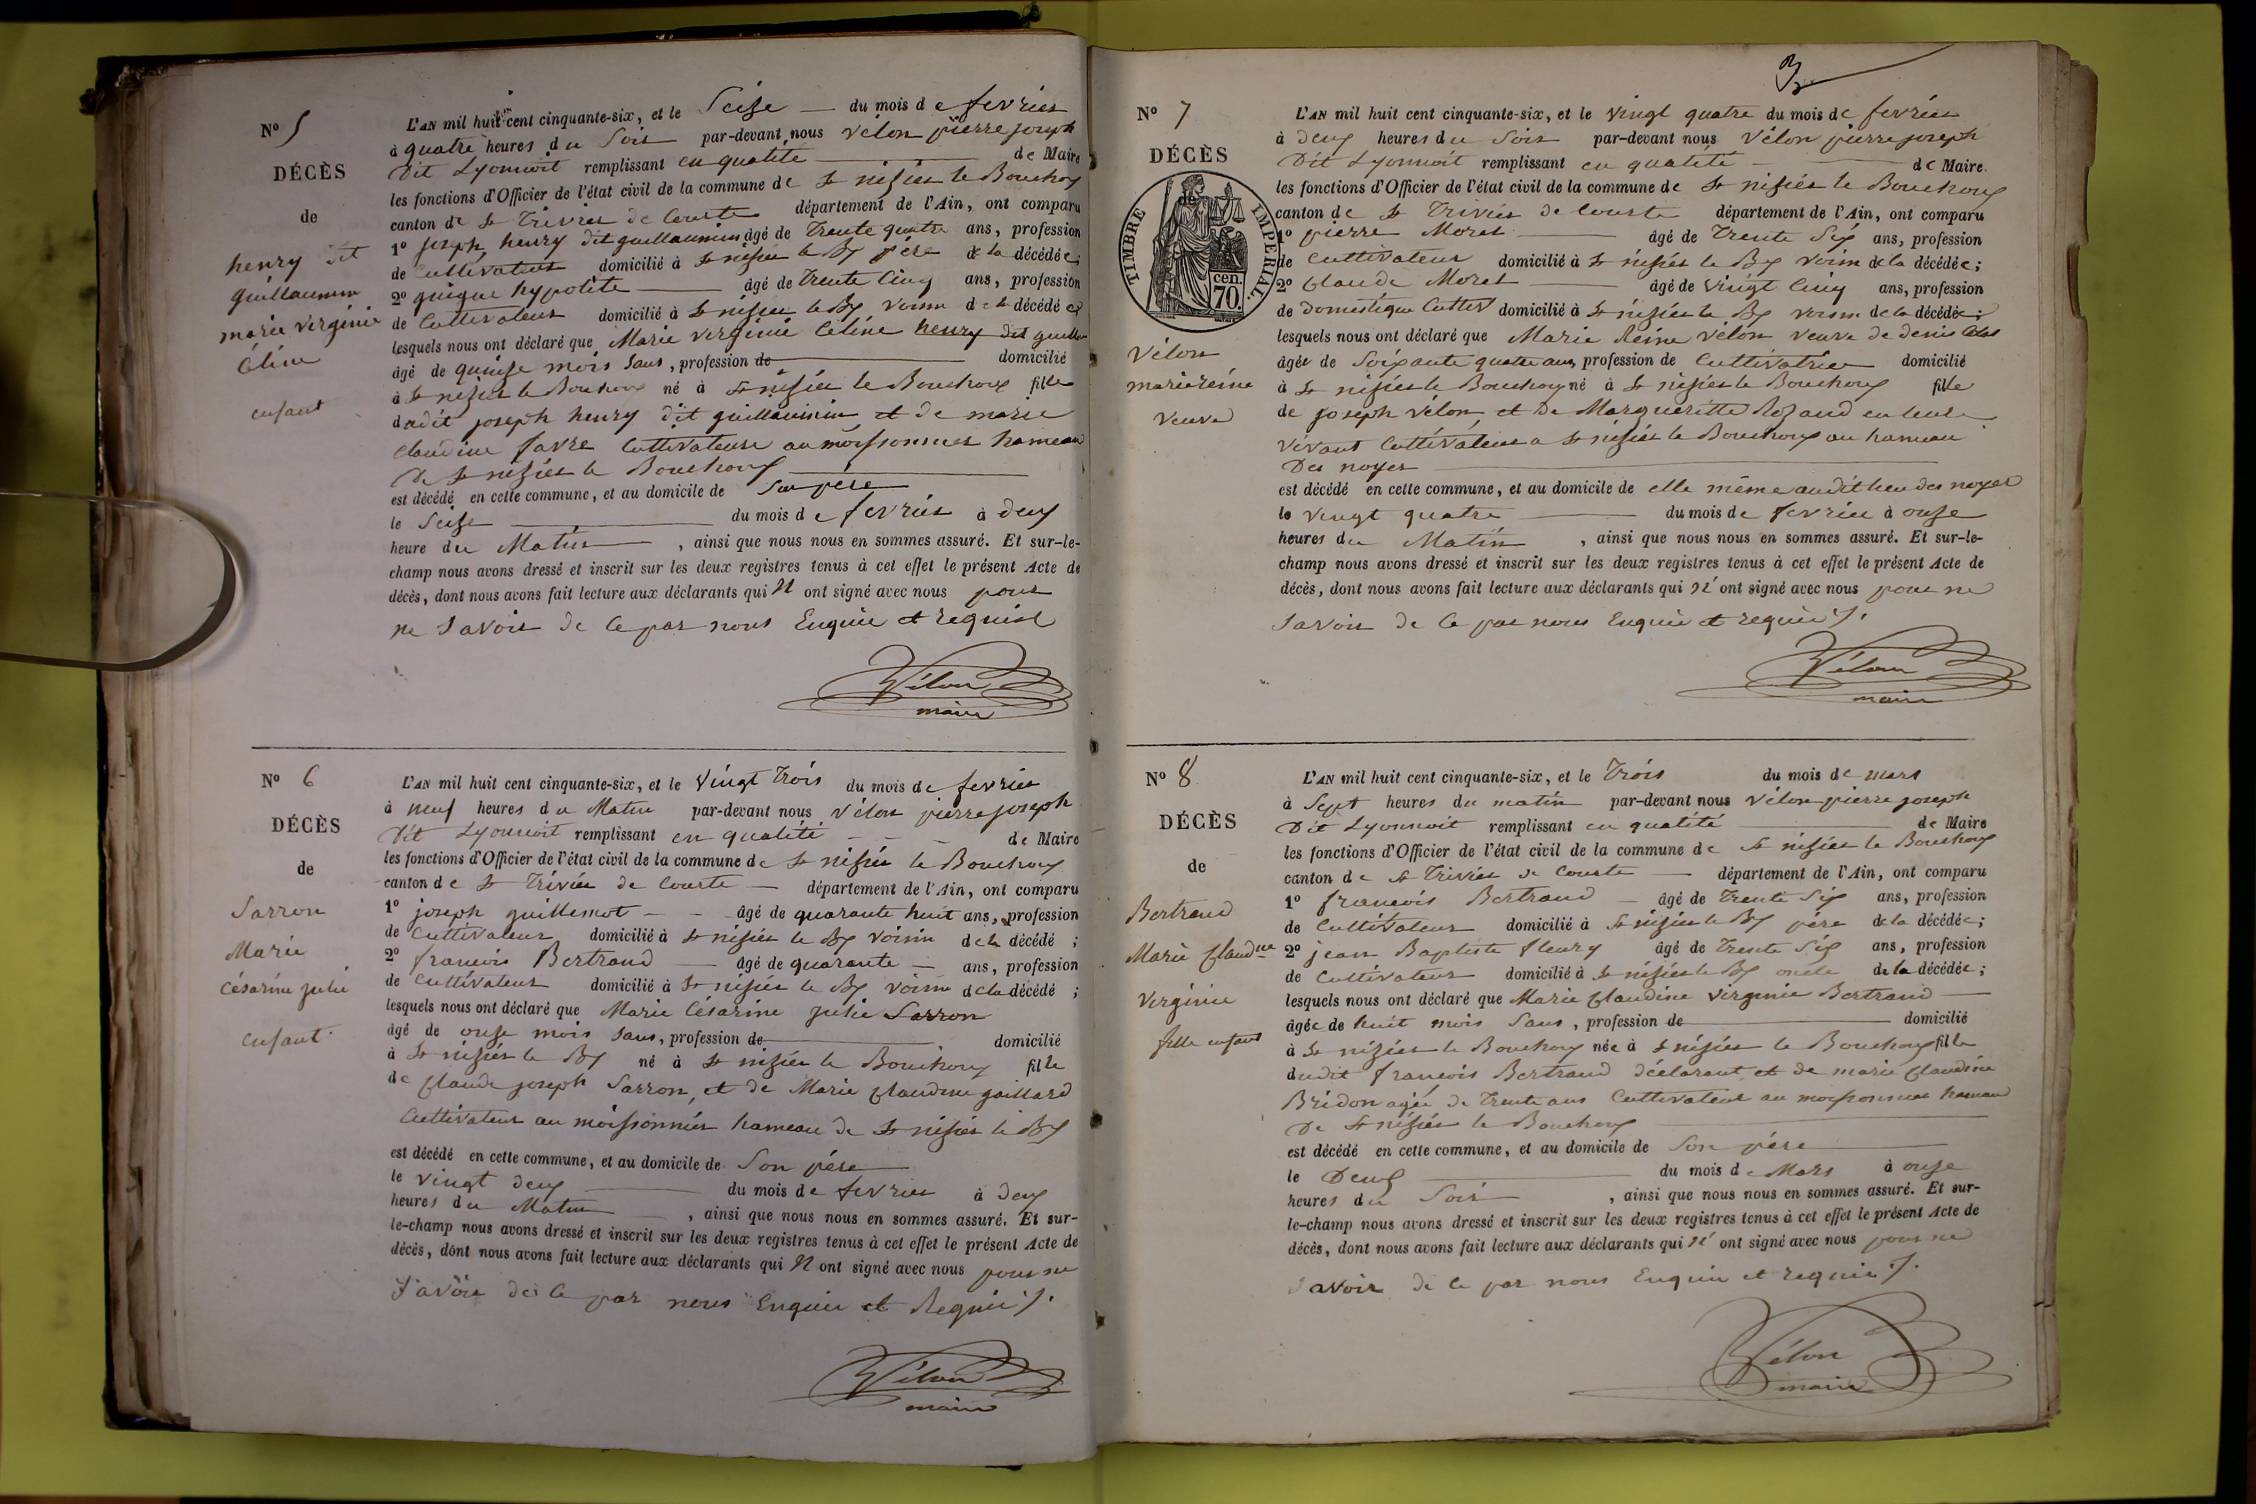 N° 5
DÉCÈS
de
henry dit
guillaumin
marie virginie
Céline
enfant
L'AN mil huit cent cinquante-six, et le Seize du mois de fevrier
à quatre heures du Soir par-devant nous vélon pierre joseph
Dit Lyonnoit remplissant en qualité de Maire
les fonctions d'Officier de l'état civil de la commune de St nisier le Bouchoux
canton de St Trivier de Courte département de l'Ain, ont comparu
1° joseph henry dit guillaumin âgé de Trente quatre ans, profession
de Cultivateur domicilié à St nisier le Bx père de la décédée;
2° guigue hypolite âgé de Trente Cinq ans, profession
de Cultivateur domicilié à St nisier le Bx voisin de la décédé
lesquels nous ont déclaré que Marie virginie Céline henry dit guillau
âgé de quinze mois Sans, profession de domicilié
à St nizier le Bouchoux né à St nisier le Bouchoux fille
dudit joseph henry dit guillaumin et de marie
claudine favre Cultivateurs au moissonnier hameau
De St nizier le Bouchoux
est décédé en cette commune, et au domicile de Son père
le Seize du mois de fevrier à deux
heure du Matin, ainsi que nous nous en sommes assuré. Et sur-le-
champ nous avons dressé et inscrit sur les deux registres tenus à cet effet le présent Acte de
décès, dont nous avons fait lecture aux déclarants qui N ont signé avec nous pour
ne Savoir de Ce par nous Enquis et requist
Vélon
maire
N° 6
DÉCÈS
de
Sarron
Marie
Césarine julie
enfant.
L'AN mil huit cent cinquante-six, et le Vingt Trois du mois de fevrier
à neuf heures du Matin par-devant nous vélon pierre joseph
Dit Lyonnoit remplissant en qualité de Maire
les fonctions d'Officier de l'état civil de la commune de St nisier le Bouchoux
canton de St Trivier de Courte département de l'Ain, ont comparu
1° joseph guillemot âgé de quarante huit ans, profession
de Cultivateur domicilié à St nisier le Bx voisin de la décédé ;
2° francois Bertrand âgé de quarante ans, profession
de Cultivateur domicilié à St nisier le Bx voisin de la décédé ;
lesquels nous ont déclaré que Marie Césarine julie Sarron
âgé de onze mois Sans, profession de domicilié
à St nisier le Bx né à St nizier le Bouchoux fille
de Claude joseph Sarron, et de Marie Claudine gaillard
Cultivateur au moissonnier hameau de St nisier le Bx
est décédé en cette commune, et au domicile de Son père
le vingt deux du mois de fevrier à deux
heures du Matin, ainsi que nous nous en sommes assuré. Et sur-
le-champ nous avons dressé et inscrit sur les deux registres tenus à cet effet le présent Acte de
décès, dont nous avons fait lecture aux déclarants qui N ont signé avec nous pour ne
Savoir de Ce par nous Enquis et Requis /.
Vélon
maire
3
N° 7
DÉCÈS
TIMBRE IMPERIAL.
cen.
70
Vélon
marie reine
Veuve
L'AN mil huit cent cinquante-six, et le vingt quatre du mois de fevrier
à deux heures du Soir par-devant nous Vélon pierre joseph
Dit Lyonnoit remplissant en qualité de Maire.
les fonctions d'Officier de l'état civil de la commune de St nisier le Bouchoux
canton de St Trivier de Courte département de l'Ain, ont comparu
1° pierre Moret âgé de Trente Six ans, profession
de Cultivateur domicilié à St nisier le Bx voisin de la décédée;
2° Claude Moret âgé de vingt Cinq ans, profession
de domestique Cultiv domicilié à St nisier le Bx voisin de la décédée;
lesquels nous ont déclaré que Marie Reine Vélon veuve de denis
âgée de Soixante quatre ans, profession de Cultivatrice domicilié
à St nisier le Bouchoux né à St nisier le Bouchoux fille
de joseph vélon et de Marguerite Rozand en leur
vivant Cultivateur a St nisier le Bouchoux au hameau
Des noyer
est décédé en cette commune, et au domicile de elle même audit lieu des noyer
le vingt quatre du mois de fevrier à onze
heures du Matin, ainsi que nous nous en sommes assuré. Et sur-le-
champ nous avons dressé et inscrit sur les deux registres tenus à cet effet le présent Acte de
décès, dont nous avons fait lecture aux déclarants qui N' ont signé avec nous pour ne
Savoir de Ce par nous Enquis et requis /.
Vélon
maire
N° 8
DÉCÈS
de
Bertrand
Marie Claudne
Virginie
fille enfant
L'AN mil huit cent cinquante-six, et le Trois du mois de mars
à Sept heures du matin par-devant nous vélon pierre joseph
Dit Lyonnoit remplissant en qualité de Maire
les fonctions d'Officier de l'état civil de la commune de St nisier le Bouchoux
canton de St Trivier de Courte département de l'Ain, ont comparu
1° francois Bertrand âgé de Trente Six ans, profession
de Cultivateur domicilié à St nisier le Bx père de la décédée;
2° jean Baptiste fleury âgé de Trente Six ans, profession
de Cultivateur domicilié à St nisier le Bx oncle de la décédée;
lesquels nous ont déclaré que Marie Claudine virginie Bertrand
âgée de huit mois Sans, profession de domicilié
à St nizier le Bouchoux née à St nisier le Bouchoux fille
dudit francois Bertrand déclarant et de marie Claudine
Bridon agée de Trente ans Cultivateur au moissonnier hameau
De St nisier le Bouchoux
est décédé en cette commune, et au domicile de Son père
le Deux du mois de Mars à onze
heures du Soir, ainsi que nous nous en sommes assuré. Et sur-
le-champ nous avons dressé et inscrit sur les deux registres tenus à cet effet le présent Acte de
décès, dont nous avons fait lecture aux déclarants qui N' ont signé avec nous pour ne
Savoir de Ce par nous Enquis et requis /.
Vélon
maire